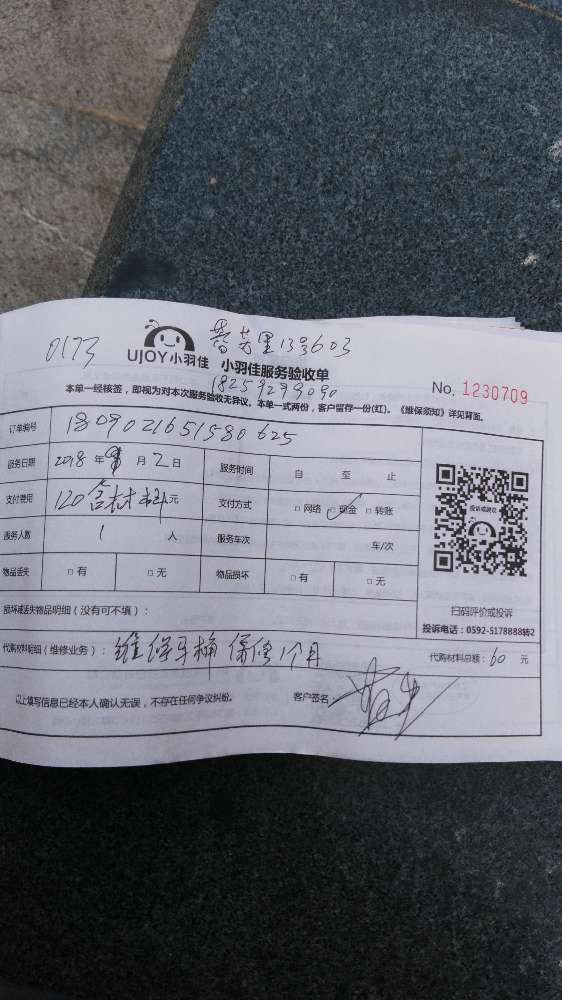 0173 普芳里133603
UJOY小羽佳 小羽佳服务验收单
18259299090
No. 1230709
本单一经核签，即视为对本次服务验收无异议。本单一式两份，客户留存一份(红)。《维保须知》详见背面。
订单编号 1809021651580625
服务日期 2018 年 9 月 2 日 服务时间 自 至 止
支付费用 120含材料元 支付方式 □ 网络 □ 现金 □ 转账
投诉或建议
服务人数 1 人 服务车次 车/次
物品丢失 □ 有 □ 无 物品损坏 □ 有 □ 无
扫码评价或投诉
损坏或丢失物品明细（没有可不填）：
投诉电话：0592-5178888转2
代购材料明细（维修业务）：维修马桶 保修1个月 代购材料总额：60 元
以上填写信息已经本人确认无误，不存在任何争议纠纷。 客户签名：